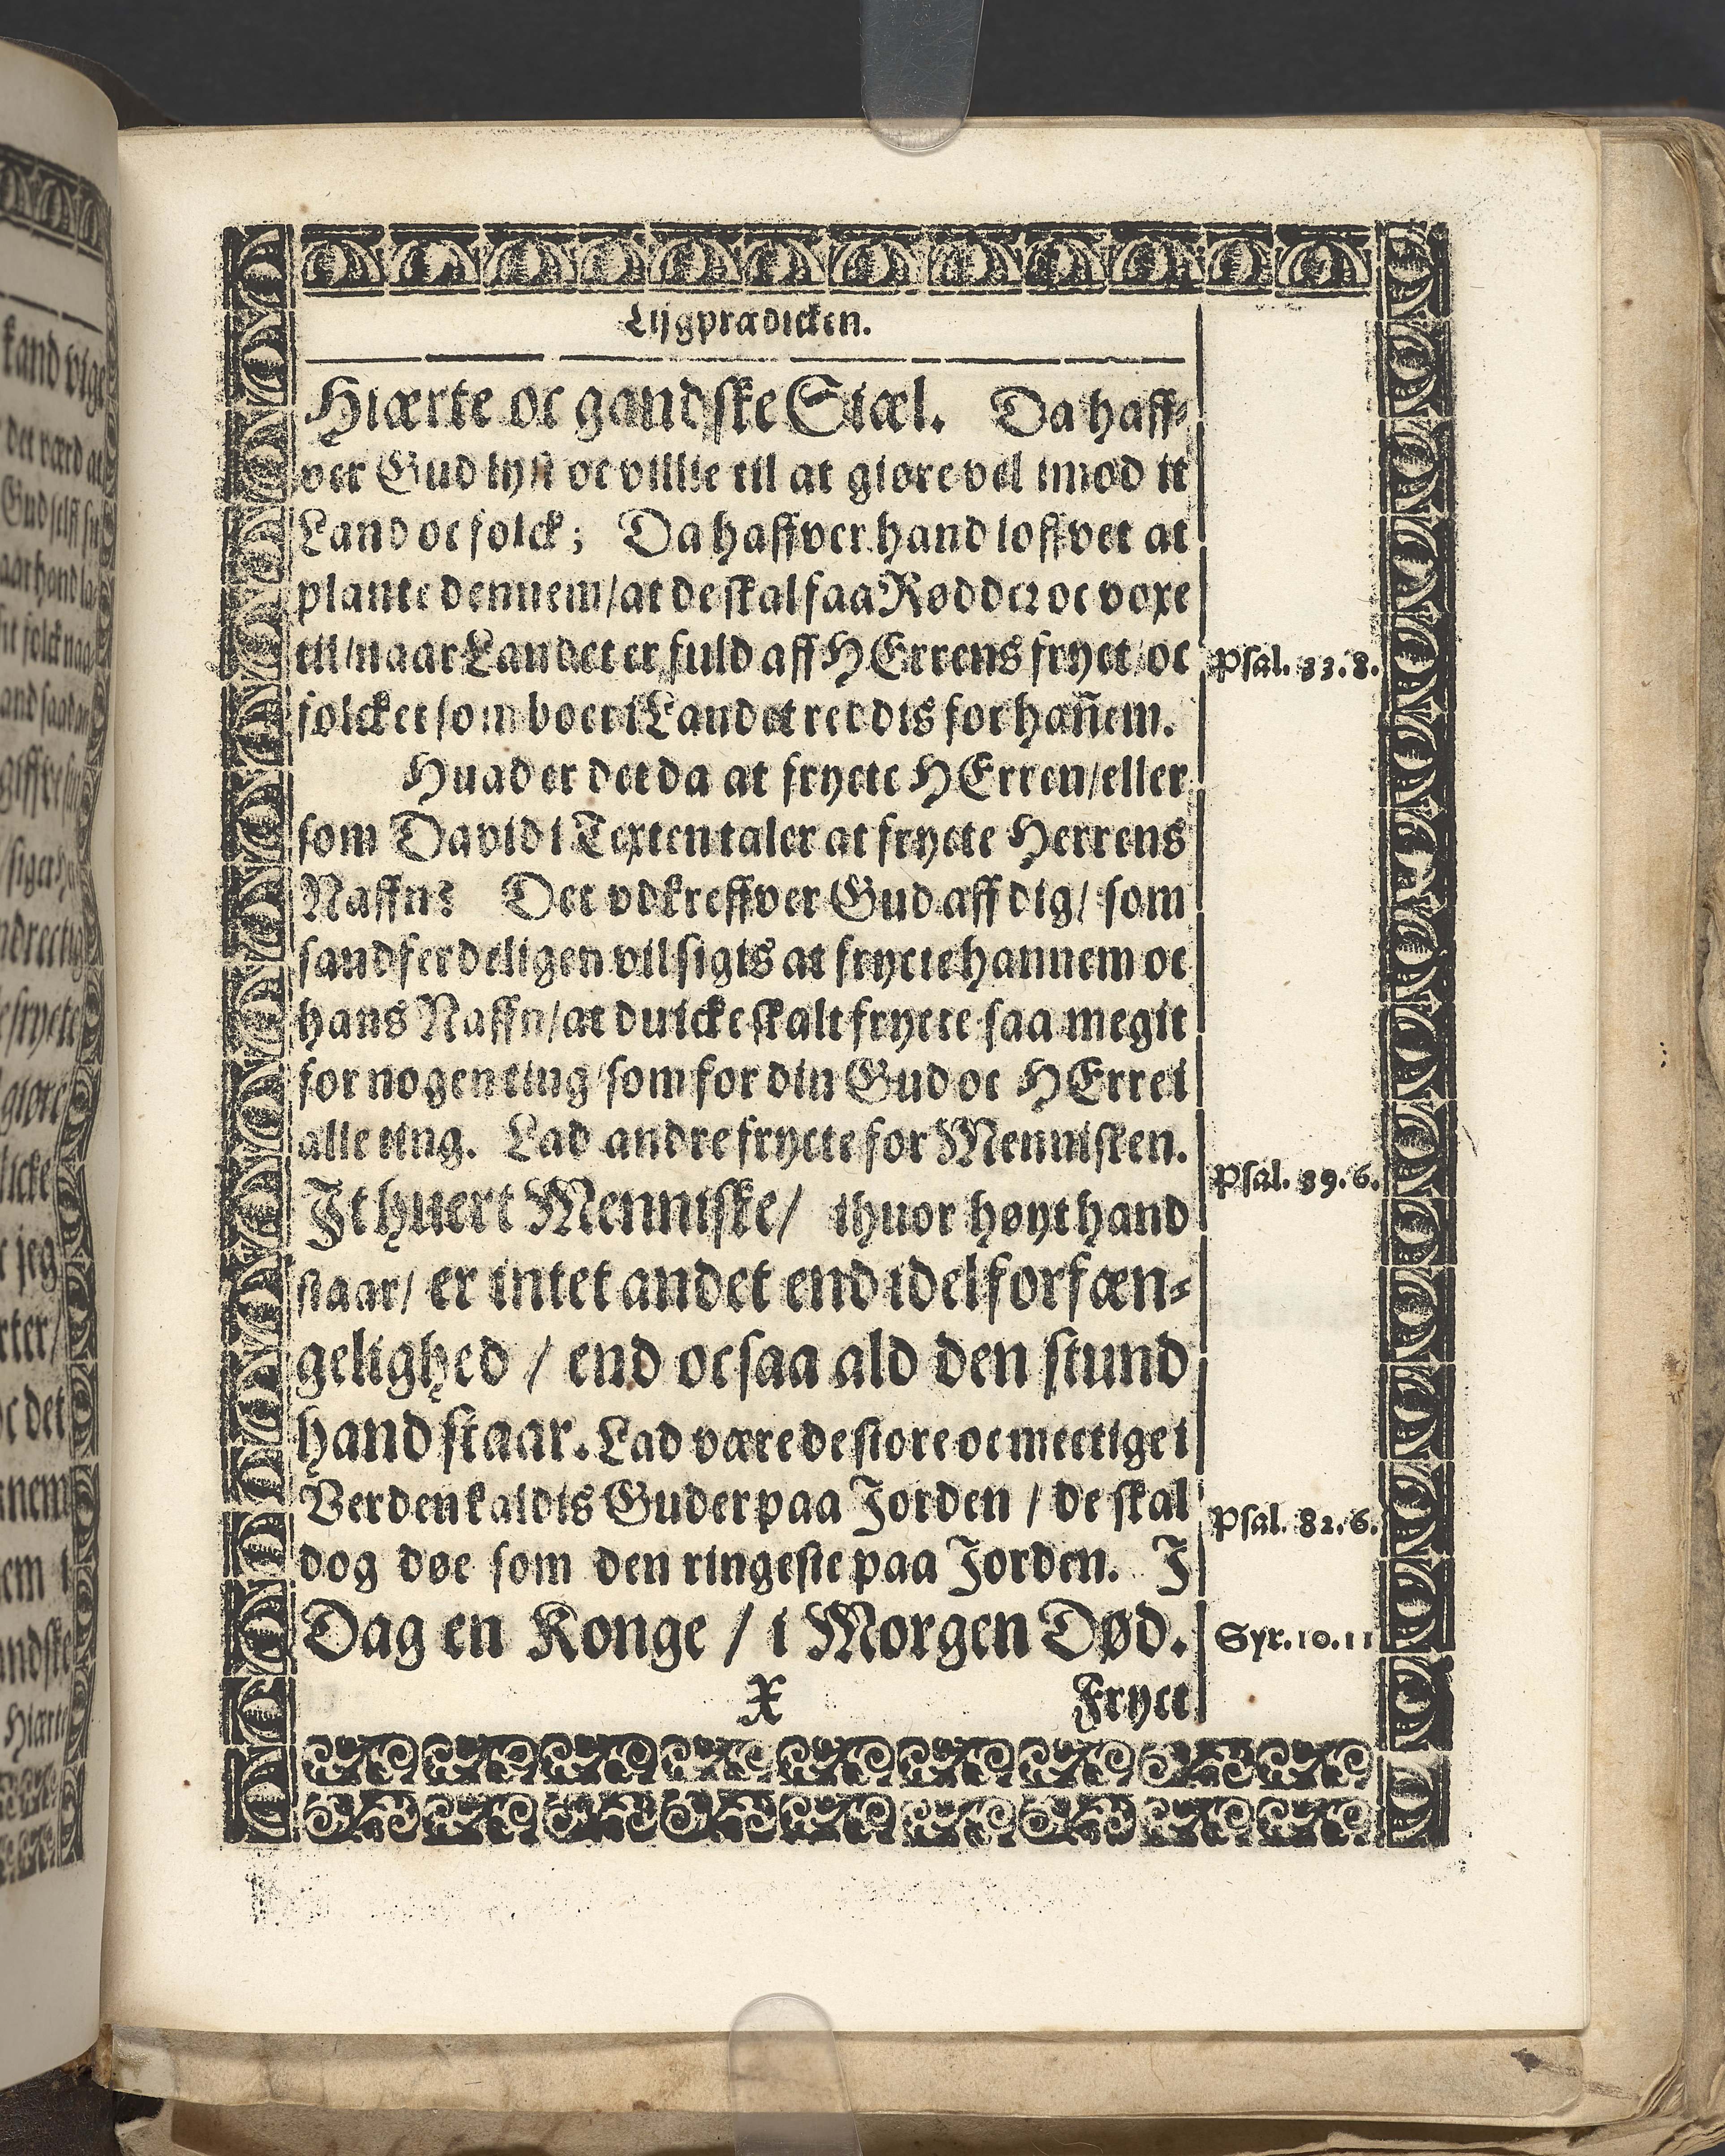 Lijgprædicken.
Hiærte oc gandske Siæl. Da haff-
ver Gud lyst oc villie til at giøre vel imod it
Land oc folck; Da haffver hand loffvet at
plante dennem/at de skal faa Rødder oc voxe
til/naar Landet er fuld aff HErrens fryct/oc
folcket som boer i Landet reddis for hañem.
Psal. 33.8.
Huad er det da at frycte HErren/eller
som David i Texten taler at frycte Herrens
Naffn? Det vdkreffver Gud aff dig/ som
sandferdeligen vil sigis at frycte hannem oc
hans Naffn/at du icke skalt frycte saa megit
for nogen ting/som for din Gud oc HErre i
alle ting. Lad andre frycte for Mennisken.
It huert Menniske/ ihuor høyt hand
Psal. 39.6.
staar/ er intet andet end idel forfæn-
gelighed / end ocsaa ald den stund
hand staar. Lad være de store oc mectige i
Verden kaldis Guder paa Jorden / de skal
Psal. 82.6.
dog døe som den ringeste paa Jorden. I
Dag en Konge / i Morgen Død.
Syr.10.11
X Fryct
kand vige
det værd at
Gud selff
hand la-
folck naa-
giffve
frycte
giøre
icke
jeg
rter/
oc det
nnem
em i
andske
Hiærte